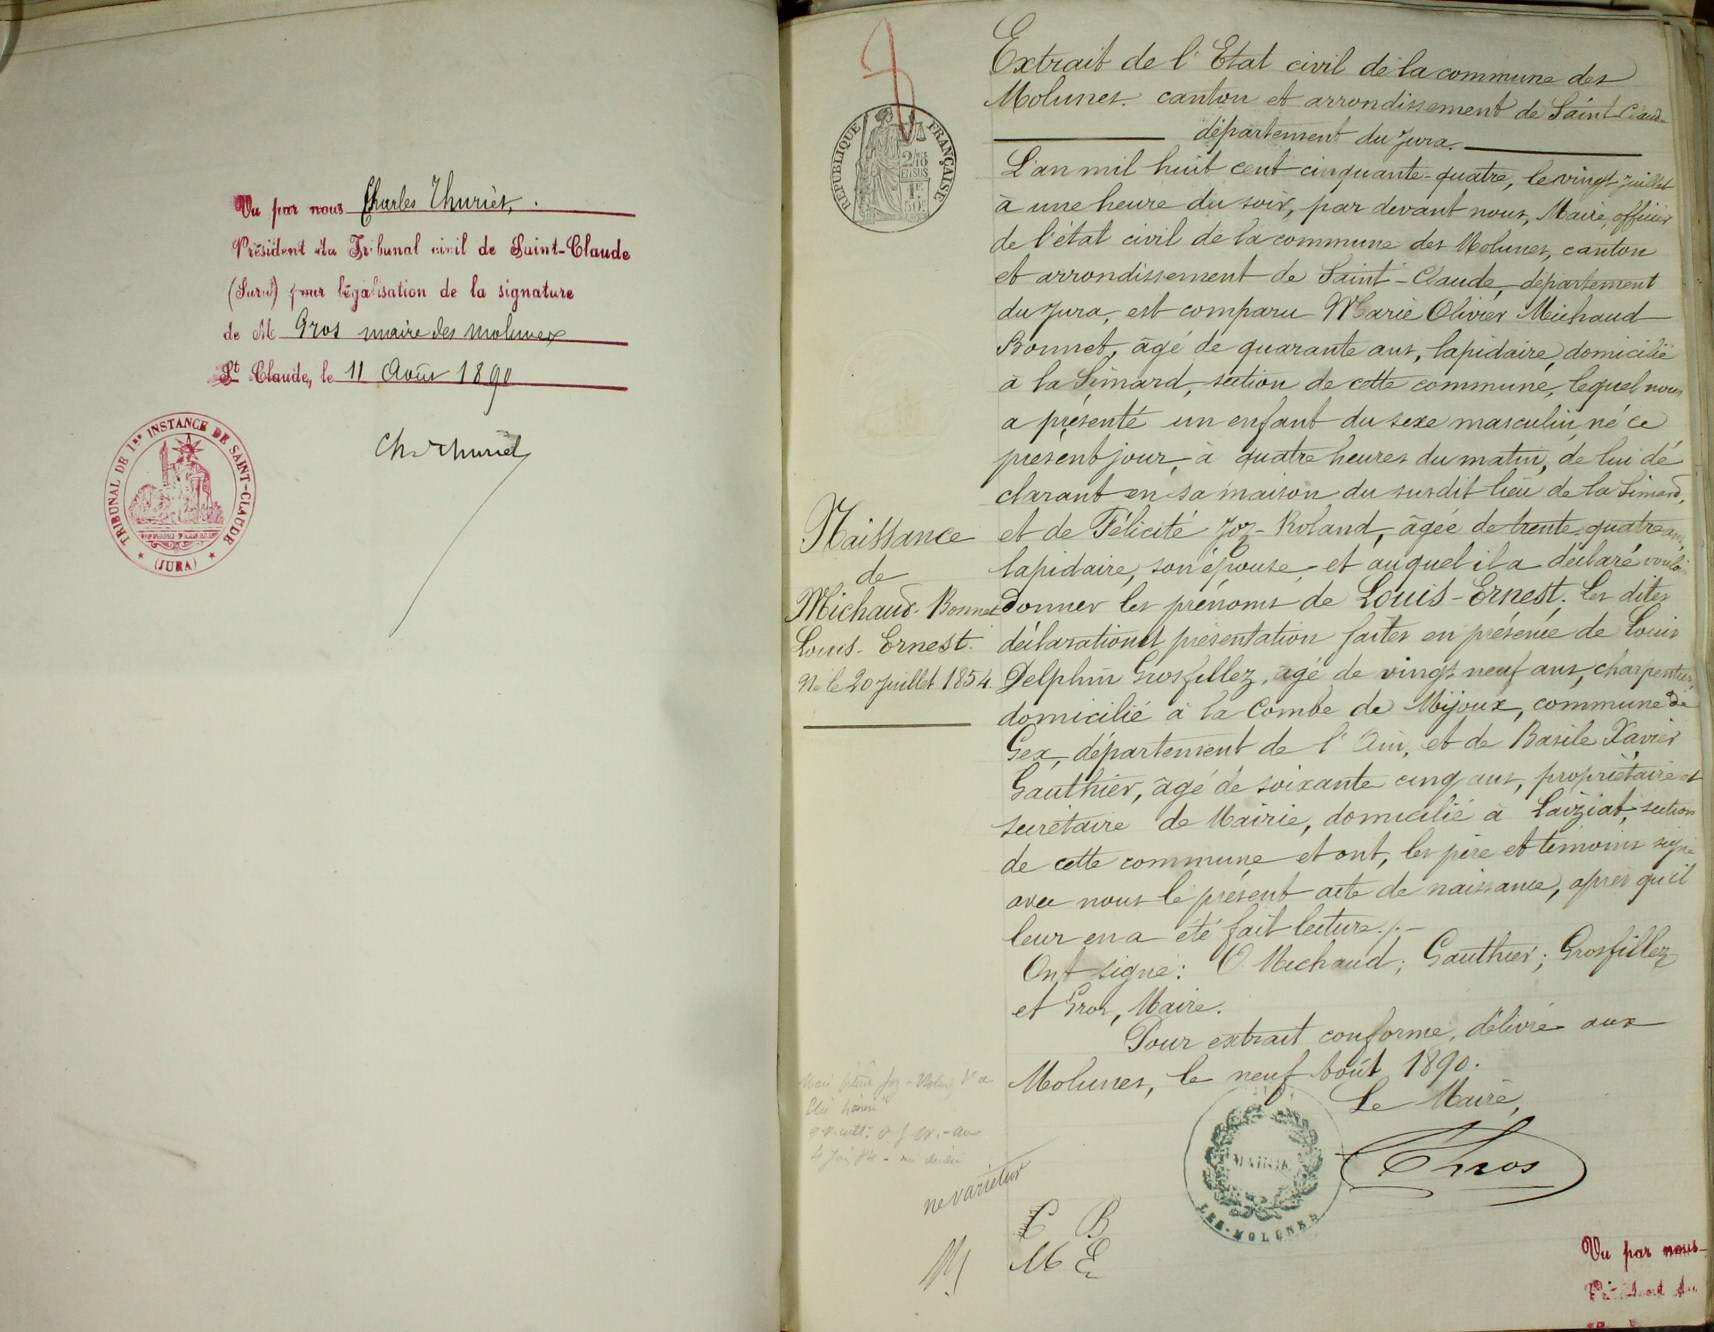 Vu par nous Charles Thuriet,
Président du Tribunal civil de Saint-Claude
(Jura) pour légalisation de la signature
de M Gros maire des Molunes
St Claude, le 11 Août 1890
TRIBUNAL DE 1re INSTANCE DE SAINT-CLAUDE
(JURA)
Ch. Thuriet
RÉPUBLIQUE FRANÇAISE
2/10
EN SUS
1F
50c
Extrait de l'Etat civil de la commune des
Molunes. canton et arrondissement de Saint Claude
département du Jura.
L'an mil huit cent cinquante-quatre, le vingt Juillet
à une heure du soir, par devant nous, Maire, officier
de l'état civil de la commune des Molunes, canton
et arrondissement de Saint-Claude, département
du Jura, est comparu Marie Olivier Michaud
Bonnet, âgé de quarante ans, lapidaire, domicilié
à la Simard, section de cette commune, lequel nous
a présenté un enfant du sexe masculin, né ce
présent jour, à quatre heures du matin, de lui dé
clarant en sa maison du susdit lieu de la Simard,
et de Félicité Joz-Roland, âgée de trente-quatre ans,
lapidaire, son épouse, et auquel il a déclaré vouloir
donner les prénoms de Louis-Ernest. Les dites
déclaration et présentation faites en présence de Louis
Delphin Grosfillez, âgé de vingt neuf ans, charpentier,
domicilié à la Combe de Mijoux, commune de
Gex, département de l'Ain, et de Basile Xavier
Gauthier, âgé de soixante cinq ans, propriétaire et
secrétaire de Mairie, domicilié à Laiziat, section
de cette commune, et ont, les père et témoins signé
avec nous le présent acte de naissance, après qu'il
leur en a été fait lecture./.
Ont signé: O Michaud; Gauthier; Grosfillez
et Gros, Maire.
Pour extrait conforme, délivré aux
Molunes, le neuf Août 1890.
Le Maire,
Gros
MAIRIE
LES-MOLUNES
Naissance
de
Michaud-Bonnet
Louis-Ernest.
Né le 20 Juillet 1854
ne varietur
C B
M E
Vu par nous
Président du